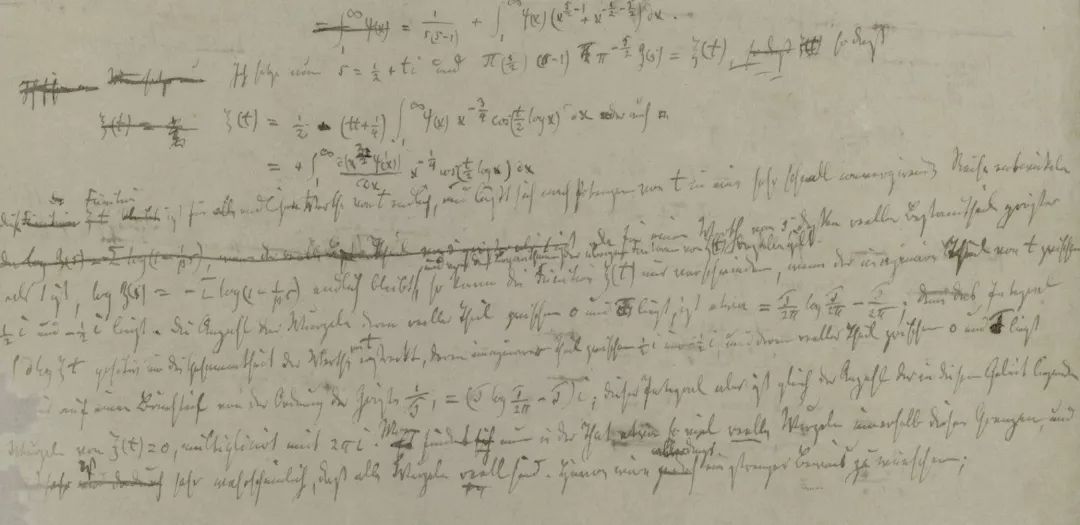 = ∫₁^∞ ψ(x) = 1/(s(s-1)) + ∫₁^∞ ψ(x) (x^{s/2-1} + x^{-s/2-1/2}) dx.
Ich setze nun s = 1/2 + ti und Π(s/2) (s-1) π^{-s/2} ζ(s) = ξ(t), so daß
ξ(t) = 1/2 - (tt+1/4) ∫₁^∞ ψ(x) x^{-3/4} cos(t/2 log x) dx oder auch
= 4 ∫₁^∞ d(x^{3/2} ψ'(x))/dx x^{-1/4} cos(t/2 log x) dx
Diese Function ist für alle endlichen Werthe von t endlich, und läßt sich nach Potenzen von t in eine sehr schnell convergirende Reihe entwickeln
Da für einen Werth von s, dessen reeller Bestandtheil größer
und von den Logarithmen der übrigen Factoren von ξ(t) dasselbe gilt
als 1 ist, log ζ(s) = -Σ log(1-p^{-s}) endlich bleibt, so kann die Function ξ(t) nur verschwinden, wenn der imaginäre Theil von t zwischen
1/2 i und -1/2 i liegt. Die Anzahl der Wurzeln deren reeller Theil zwischen 0 und T liegt, ist etwa = T/2π log T/2π - T/2π; denn das Integral
∫ d log ξt positiv um die Gesammtheit der Werthe von t erstreckt, deren imaginärer Theil zwischen 1/2 i und -1/2 i, und deren reeller Theil zwischen 0 und T liegt
ist bis auf einen Bruchtheil von der Ordnung der Größe 1/T, = (T log T/2π - T) i; dieses Integral aber ist gleich der Anzahl der in diesem Gebiet liegenden
Wurzeln von ξ(t) = 0, multiplicirt mit 2πi. Man findet nun in der That etwa so viel reelle Wurzeln innerhalb dieser Grenzen, und
es ist sehr wahrscheinlich, daß alle Wurzeln reell sind. Hiervon wäre allerdings ein strenger Beweis zu wünschen;